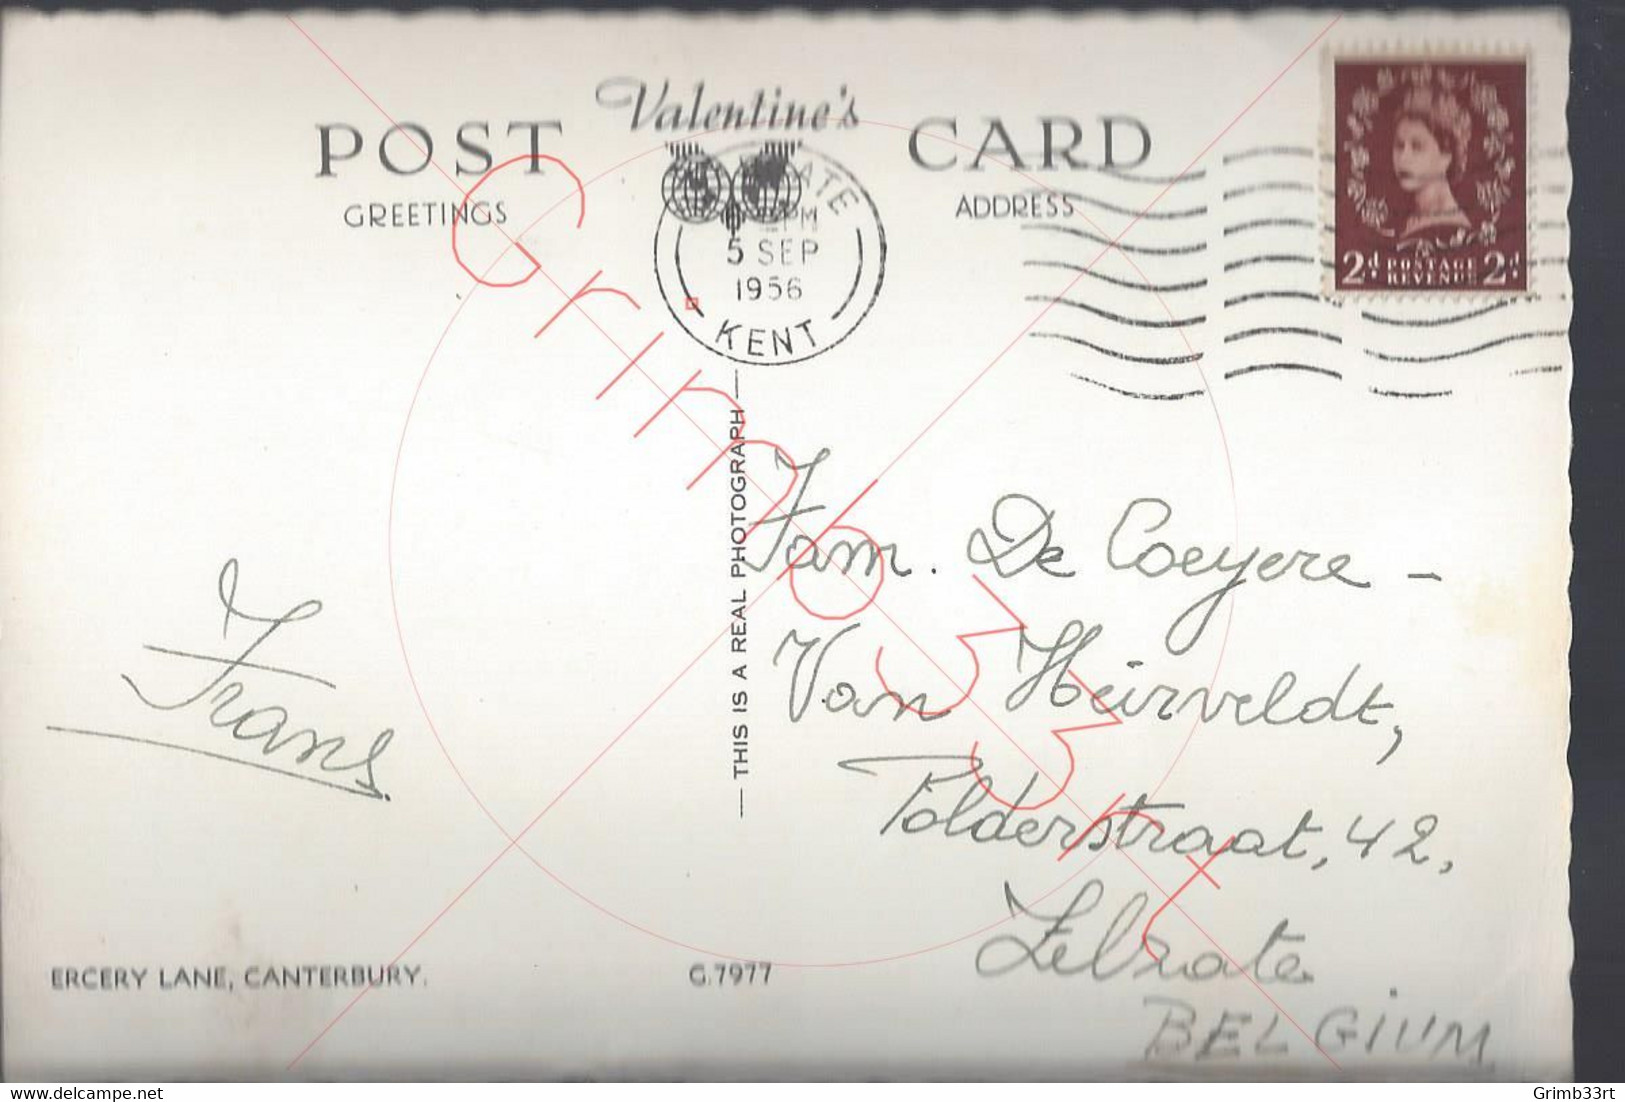 Valentine's
POST CARD
GREETINGS
ADDRESS
PM
5 SEP
1956
KENT
2d POSTAGE 2d
REVENUE
THIS IS A REAL PHOTOGRAPH
Fam. De Coeyere -
Van Heirveldt,
Polderstraat, 42,
Zelzate
BELGIUM
Frans.
ERCERY LANE, CANTERBURY.
G.7977
Grimb33rt
http://www.delcampe.net
Grimb33rt